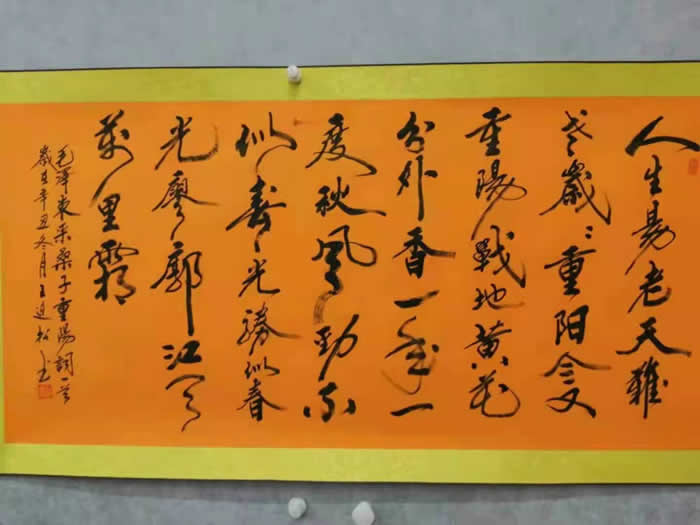 人生易老天難
老歲〻重阳今又
重陽戰地黃花
分外香一年一
度秋风勁不
似春〻光勝似春
光寥廓江天
萬里霜
毛澤東采桑子重陽詞一首
歲在辛丑冬月王松書